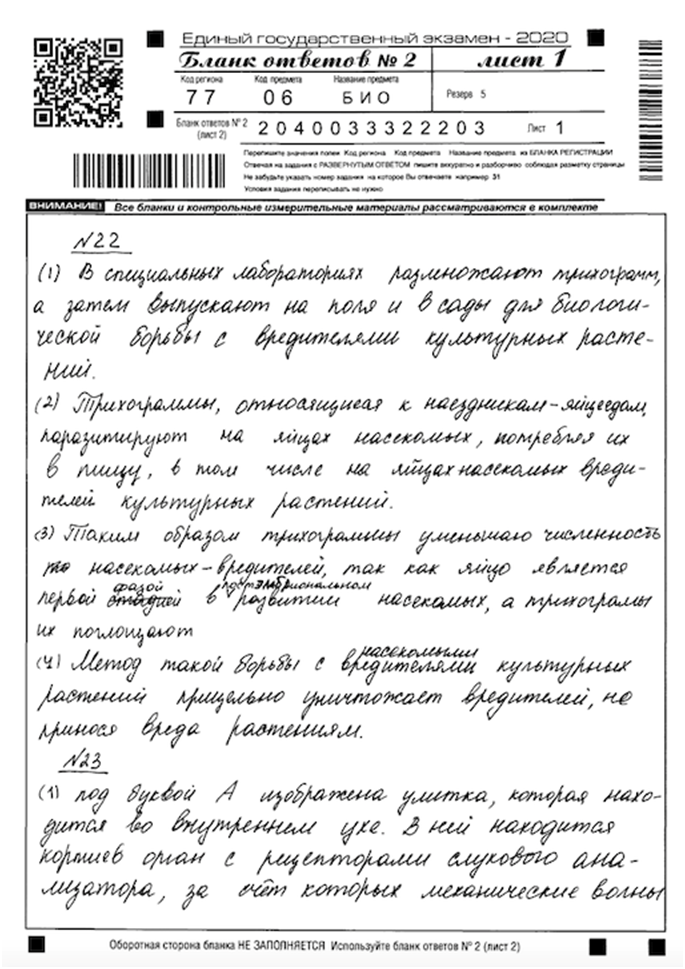 Единый государственный экзамен - 2020
Бланк ответов № 2 лист 1
Код региона Код предмета Название предмета
77 06 БИО Резерв 5
Бланк ответов № 2
(лист 2) 2040033322203 Лист 1
Перепишите значения полей Код региона Код предмета Название предмета из БЛАНКА РЕГИСТРАЦИИ
Отвечая на задания с РАЗВЕРНУТЫМ ОТВЕТОМ пишите аккуратно и разборчиво соблюдая разметку страницы
Не забудьте указать номер задания на которое Вы отвечаете например 31
Условия задания переписывать не нужно
ВНИМАНИЕ! Все бланки и контрольные измерительные материалы рассматриваются в комплекте
№22
(1) В специальных лабораториях размножают трихограмм,
а затем выпускают на поля и в сады для биологи-
ческой борьбы с вредителями культурных расте-
ний.
(2) Трихограммы, относящиеся к наездникам-яйцеедам,
паразитируют на яйцах насекомых, потребляя их
в пищу, в том числе на яйцах насекомых вреди-
телей культурных растений.
(3) Таким образом трихограммы уменьшаю численность
насекомых-вредителей, так как яйцо является
фазой постэмбриональном
первой стадией в развитии насекомых, а трихограмы
их поглощают
насекомыми
(4) Метод такой борьбы с вредителями культурных
растений прицельно уничтожает вредителей, не
принося вреда растениям.
№23
(1) под буквой А изображена улитка, которая нахо-
дится во внутреннем ухе. В ней находится
кортиев орган с рецепторами слухового ана-
лизатора, за счёт которых механические волны
Оборотная сторона бланка НЕ ЗАПОЛНЯЕТСЯ Используйте бланк ответов № 2 (лист 2)